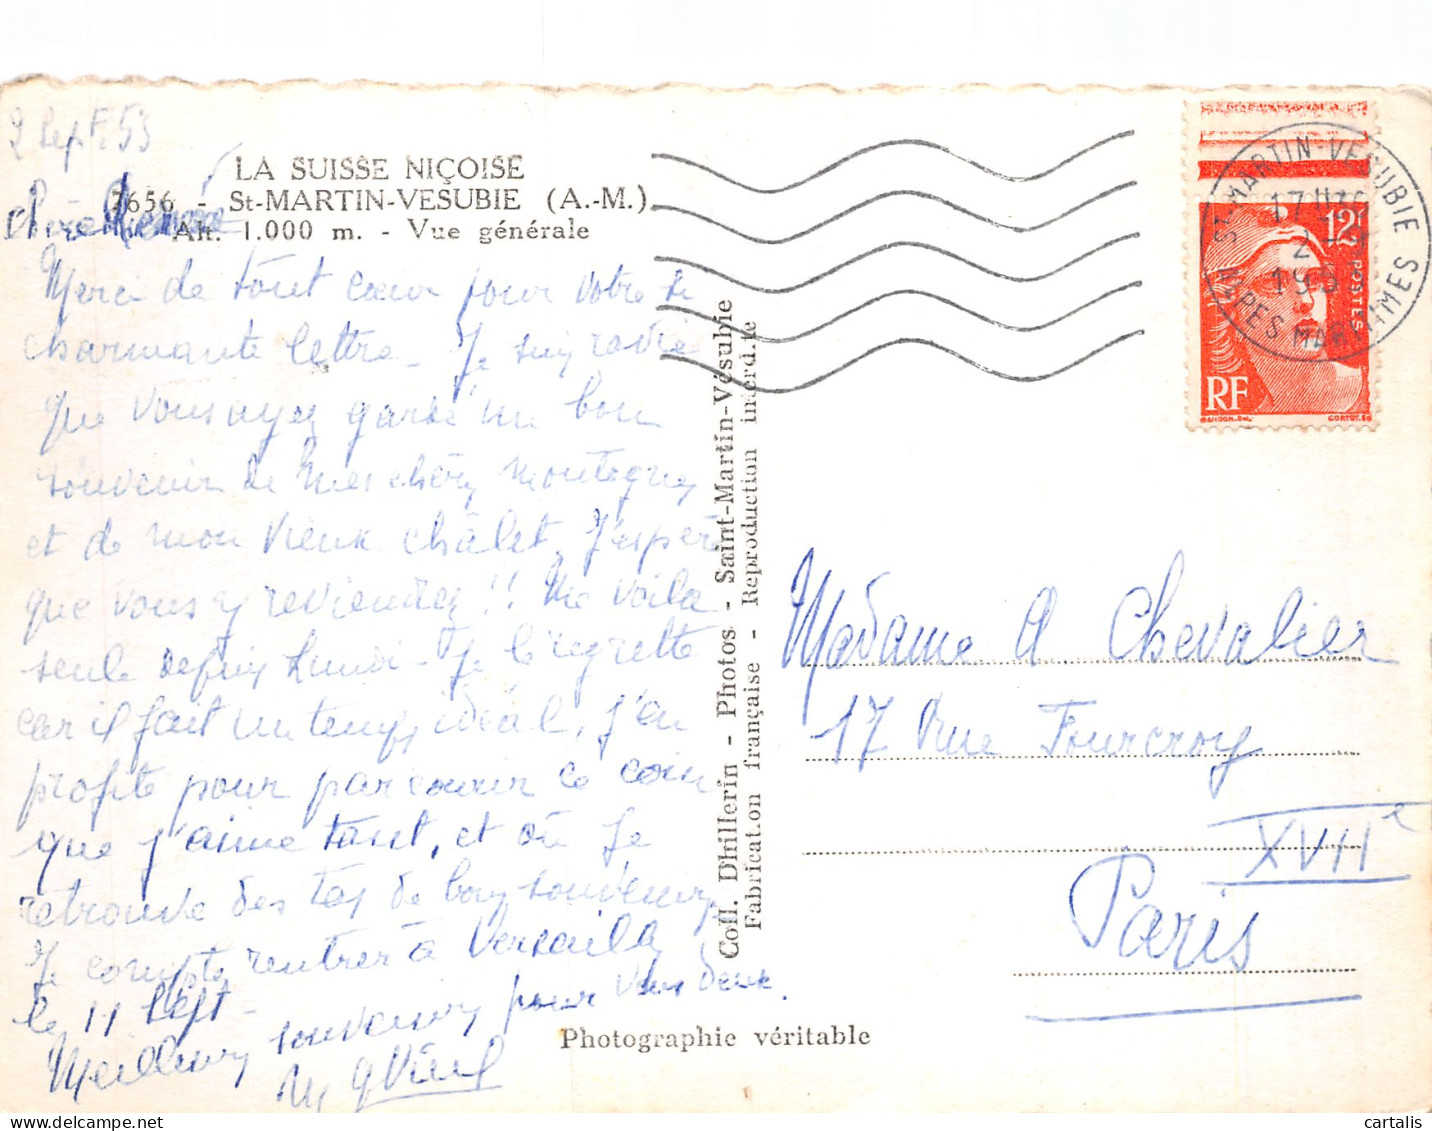 2 Sept. 53
LA SUISSE NIÇOISE
7656 - St-MARTIN-VESUBIE (A.-M.)
Alt. 1.000 m. - Vue générale
Chère
Merci de tout cœur pour votre si
charmante lettre - Je suis ravie
que vous ayez gardé un bon
souvenir de mes chères montagnes
et de mon vieux châlet, J'espère
que vous y reviendrez !! Me voila
seule depuis Lundi - Je le regrette
car il fait un temps idéal, j'en
profite pour parcourir ce coin
que j'aime tant, et où je
retrouve des tas de bons souvenirs,
Je compte rentrer à Versailles
le 11 Sept -
Meilleurs souvenirs pour vous deux.
Coll. Dhillerin - Photos - Saint-Martin-Vésubie
Fabrication française - Reproduction interdite
Photographie véritable
ST MARTIN-VESUBIE
ALPES MARITIMES
17H
2
1953
12F
POSTES
RF
GANDON. DEL.
CORTOT. SC
Madame A Chevalier
17 Rue Fourcroy
XVIIe
Paris
cartalis